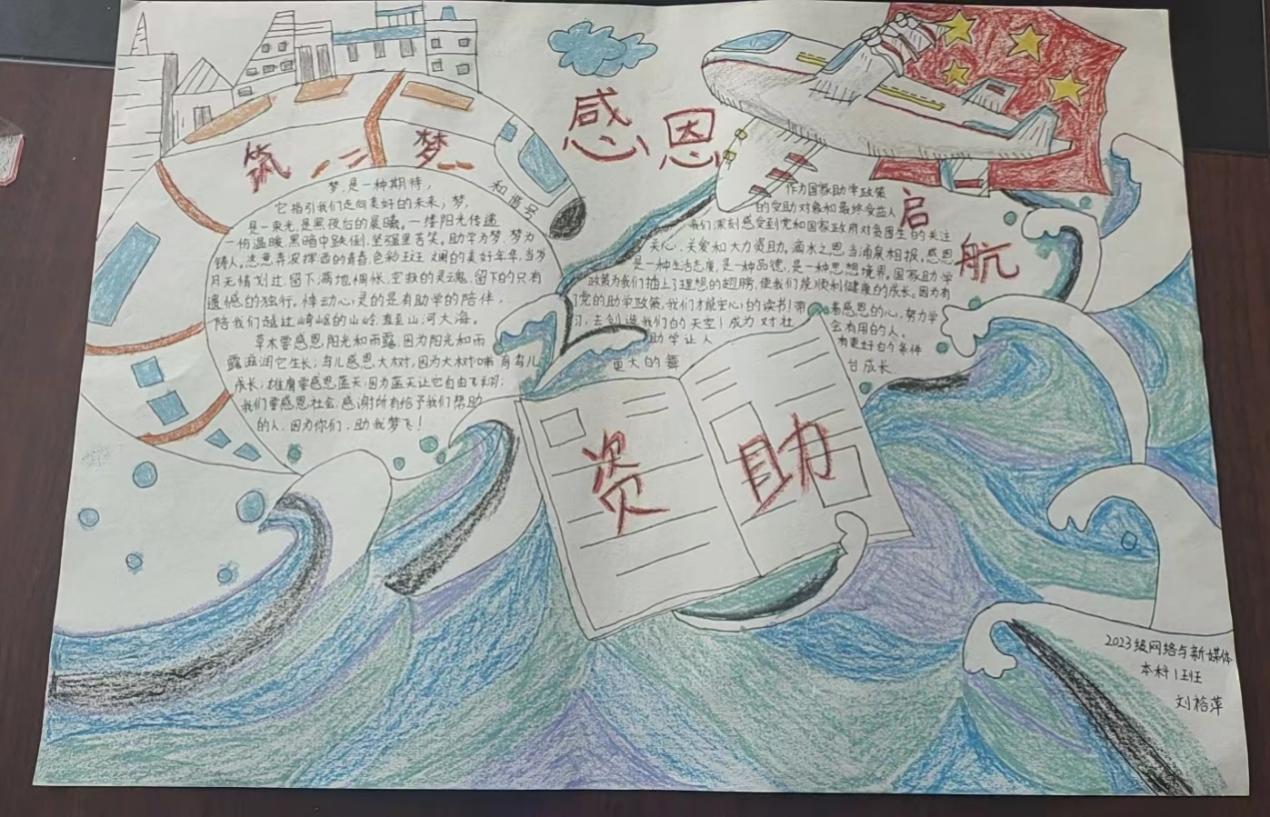 感恩
筑梦
和谐号
梦,是一种期待,
它指引我们走向美好的未来;梦,
是一束光,是黑夜后的晨曦。一缕阳光传递
一份温暖,黑暗中跌倒,坚强里苦笑。助学为梦,梦为
铸人。恣意奔波挥洒的青春,色彩斑斓的美好年华,当岁
月无情划过,留下满地惆怅,空寂的灵魂,留下的只有
遗憾的独行。悸动心灵的是有助学的陪伴,
陪我们越过崎岖的山岭,直至山河大海。
草木要感恩阳光和雨露,因为阳光和雨
露滋润它生长;鸟儿感恩大树,因为大树哺育鸟儿
成长;雄鹰要感恩蓝天,因为蓝天让它自由飞翔;
我们要感恩社会,感谢所有给予我们帮助
的人,因为你们,助我梦飞!
启航
作为国家助学政策
的受助对象和最终受益人
我们深刻感受到党和国家政府对贫困生的关注
关心、关爱和大力资助。滴水之恩当涌泉相报,感恩
是一种生活态度,是一种品德,是一种思想境界。国家助学
政策为我们插上了理想的翅膀,使我们能顺利健康的成长。因为有
了党的助学政策,我们才能安心的读书!带着感恩的心,努力学
习,去创造我们的天空!成为对社会有用的人。
助学让人有更好的条件
更大的舞台成长
资助
2023级网络与新媒体
本科1班
刘 萍